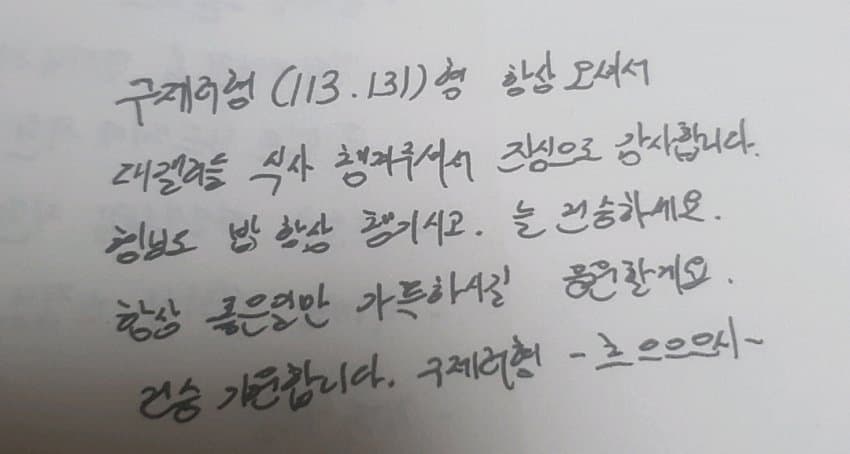 구제러형 (113.131)형 항상 오셔서
대갤러들 식사 챙겨주셔서 진심으로 감사합니다.
형님도 밥 항상 챙기시고. 늘 건승하세요.
항상 좋은일만 가득하시길 응원할게요.
건승 기원합니다. 구제러형 - 흐으으으시~